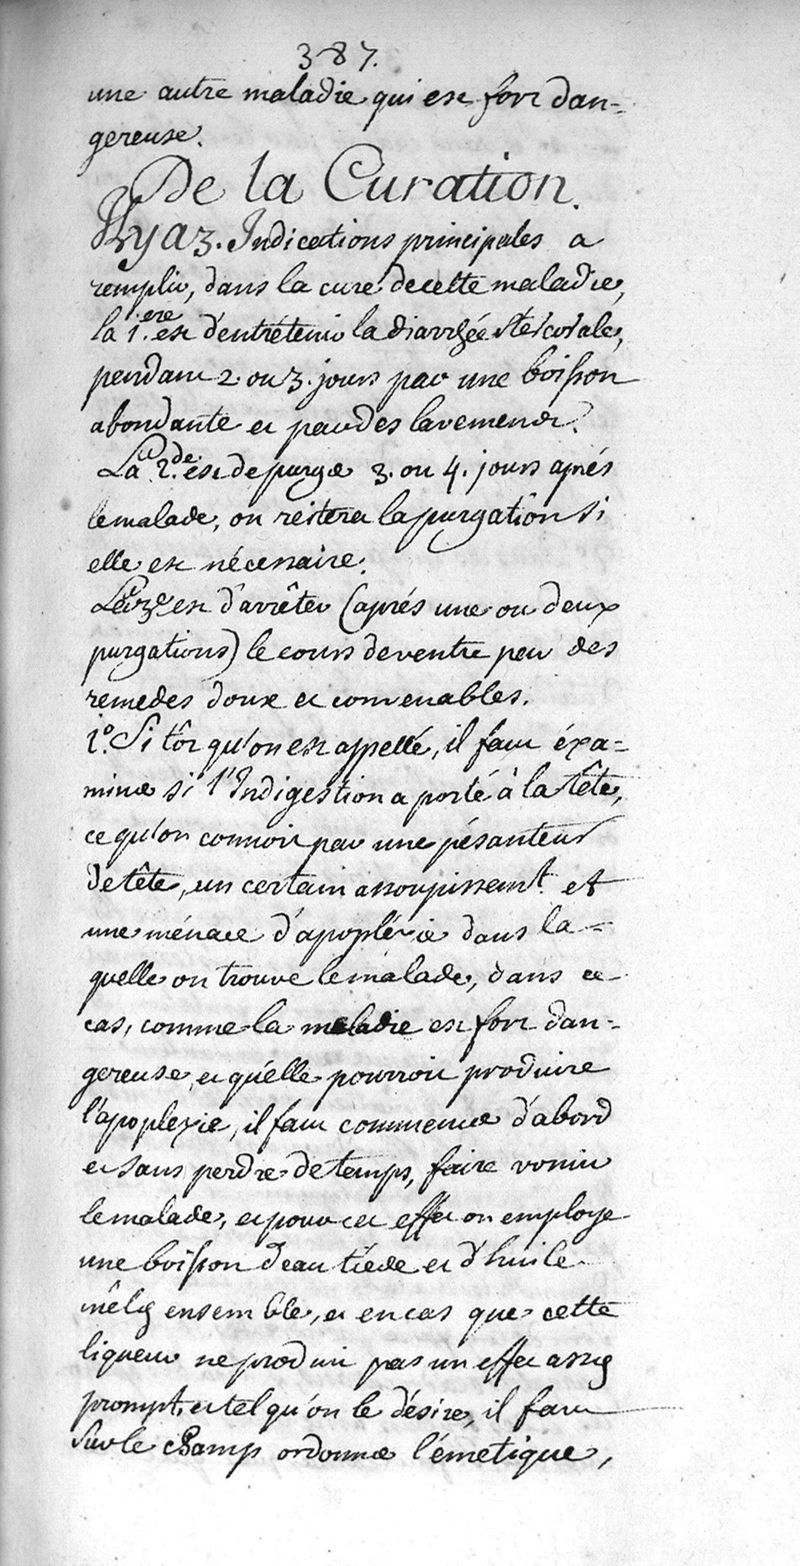 387.
une autre maladie qui est fort dan=
gereuse.
De la Curation.
Il y a 3. Indications principales a
remplir, dans la cure de cette maladie,
la 1.ere est d'entrétenir la diarrhée stercorale,
pendant 2 ou 3. jours par une boisson
abondante et par des lavements.
La 2.de est de purger 3. ou 4. jours aprés
le malade, on reitera la purgation si
elle est nécessaire.
La 3.e est d'arrêter (aprés une ou deux
purgations) le cours de ventre par des
remedes doux et convenables.
1.° Si tôt qu'on est appellé, il faut éxa=
miner si l'Indigestion a porté à la tête,
ce qu'on connoit par une pésanteur
de tête, un certain assoupissemt. et
une ménace d'apopléxie dans la=
quelle on trouve le malade, dans ce
cas, comme la maladie est fort dan-
gereuse et qu'elle pourroit produire
l'apoplexie, il faut commencer d'abord
et sans perdre de temps, faire vomir
le malade, et pour cet effet on employe
une boisson d'eau tiéde et d'huile
mêlés ensemble, et en cas que cette
liqueur ne produit pas un effet assés
prompt, et tel qu'on le désire, il faut
sur le champ ordonner l'émetique,